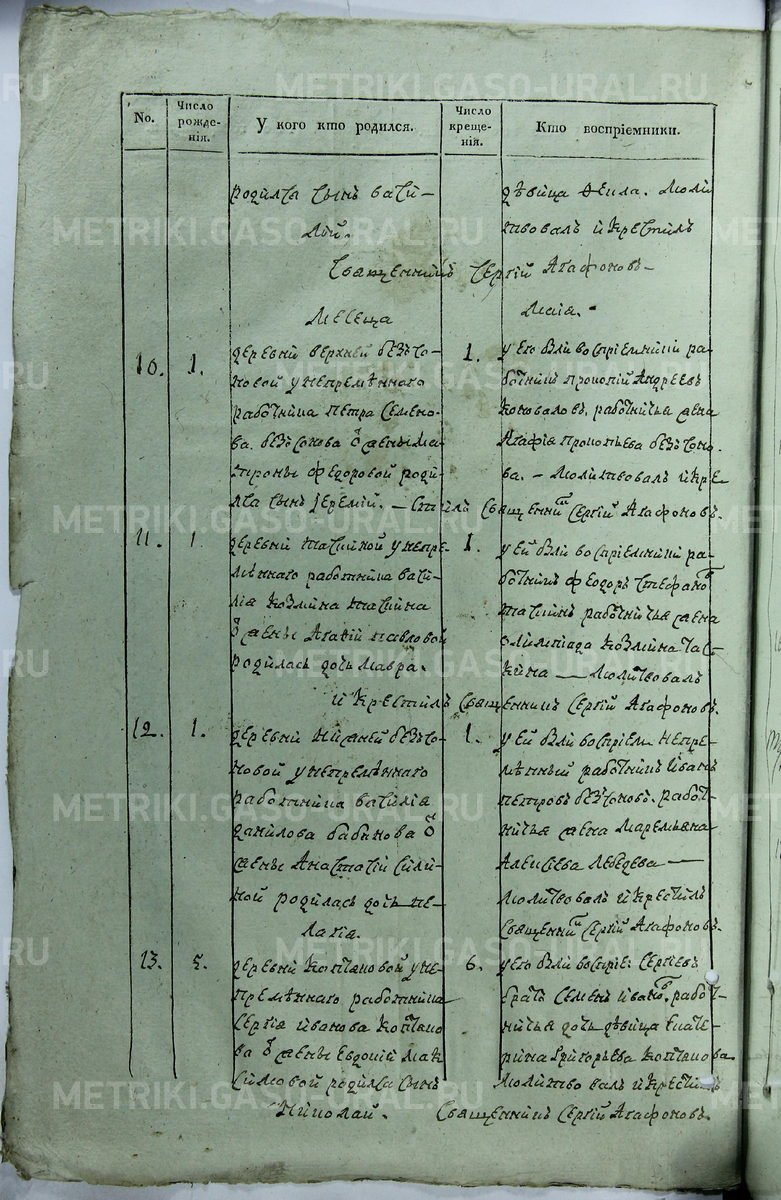 METRIKI.GASO-URAL.RU
No.
Число рожденія.
У кого кто родился.
Число крещенія.
Кто воспріемники.
родился сынъ васи-
лій.
дѣвица Ѳекла. Моли
твовалъ и крестилъ
Священникъ Сергій Агафоновъ
Месеца
Маія.
10.
1.
деревни верхней безсо-
новой у непремѣннаго
работника петра семено-
ва безсонова ѿ жены ма
троны федоровой роди
лса сынъ іеремій. –
1.
у его были воспріемники ра-
ботникъ прокопій Андреевъ
коноваловъ, работничья жена
Агафія прокопьева безсоно-
ва. – Молитвовалъ и кре
стилъ Священникъ Сергій Агафоновъ.
11.
1
деревни таскиной у непре
мѣннаго работника васи-
лія козмина таскина
ѿ жены Агафіи павловой
родилась дочь мавра.
1.
у ей были воспріемники ра-
ботникъ феодоръ стефановъ
таскинъ работничья жена
олимпіада козмина тас-
кина — Молитвовалъ
и крестилъ Священникъ Сергій Агафоновъ.
12.
1.
деревни нижней безсо-
новой у непремѣннаго
работника василія
данилова бабинова ѿ
жены Анастасіи
родилась дочь пе-
лагія.
1.
у ей были воспріем. непре-
мѣнный работникъ иванъ
петровъ безсоновъ. работ-
ничья жена Маремьяна
Алексѣева Лебедева —
Молитвовалъ и крестилъ
Священникъ Сергій Агафоновъ.
13.
5.
деревни коптяковой у не-
премѣннаго работника
Сергія иванова
ѿ жены евдокіи мак
симовой родился сынъ
Николай.
6.
у его были воспріе: Сергіевъ
братъ Семенъ ивановъ. работ-
ничья дочь дѣвица екате-
рина григорьева
Молитвовалъ и крестилъ
Священникъ Сергій Агафоновъ.